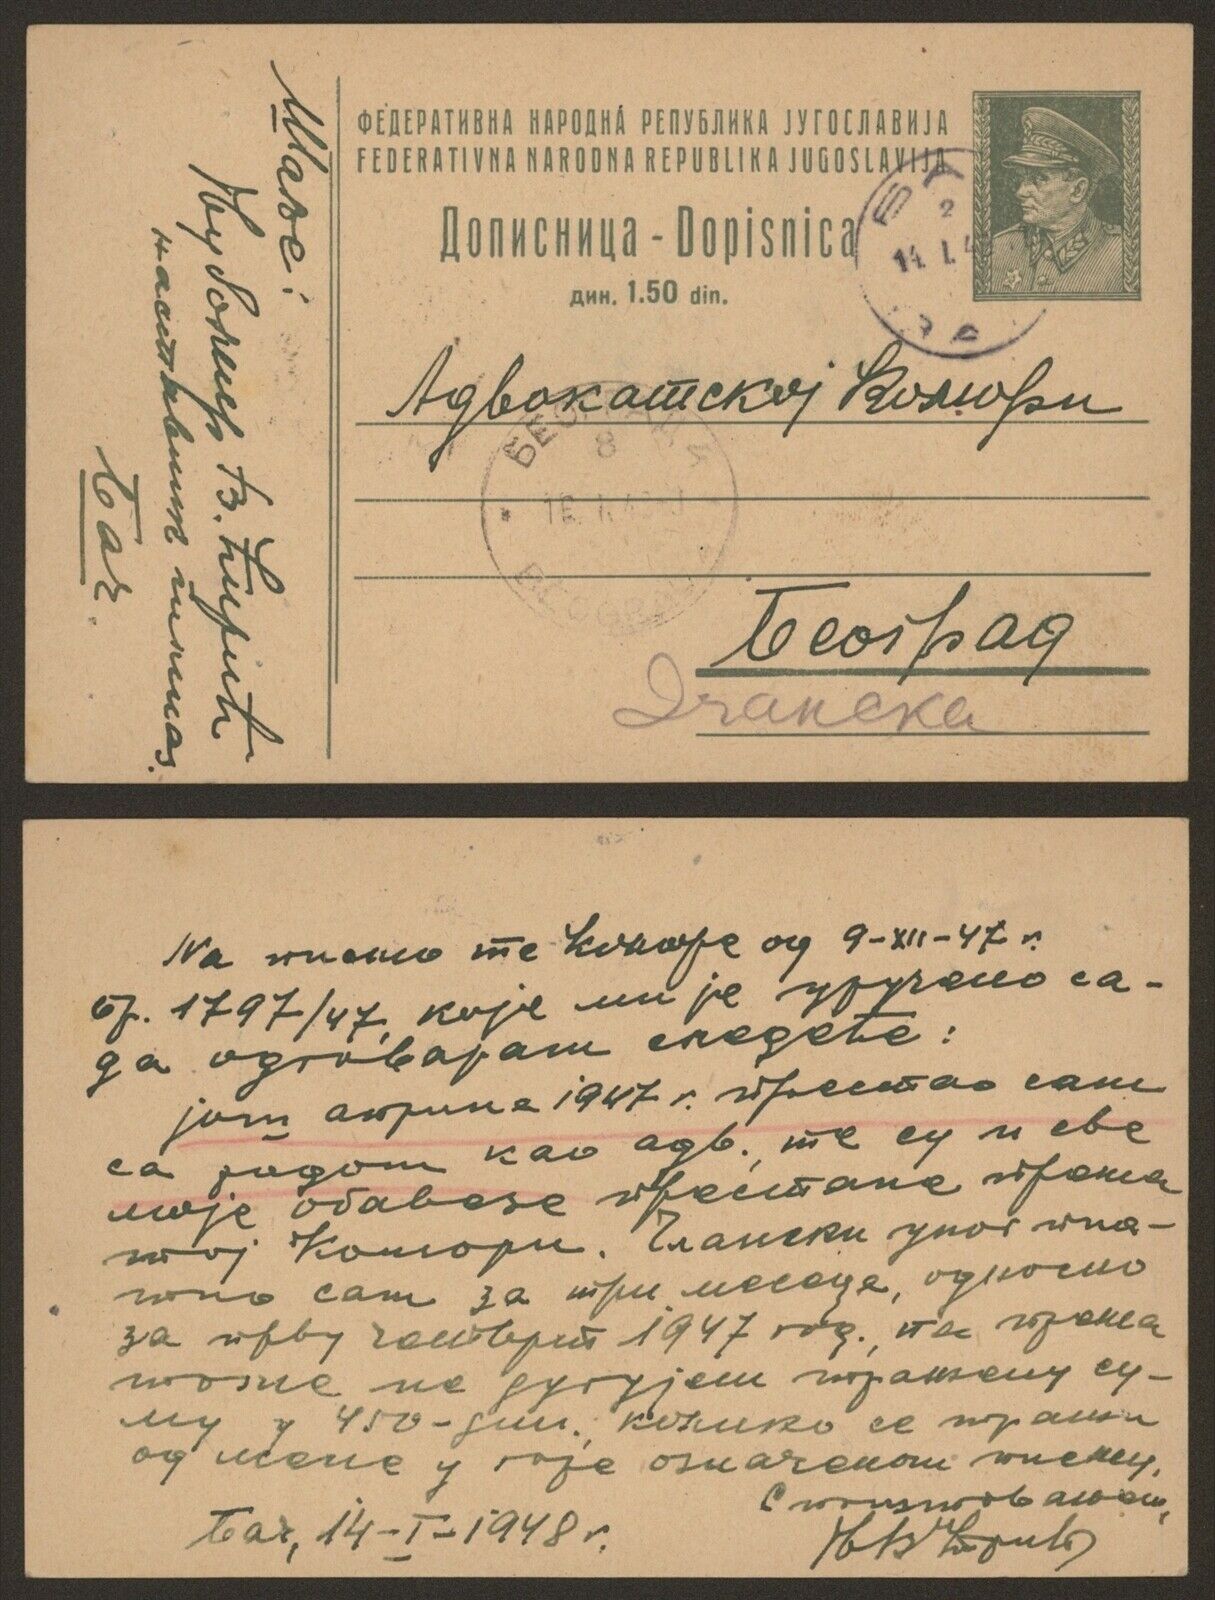 ФЕДЕРАТИВНА НАРОДНА РЕПУБЛИКА ЈУГОСЛАВИЈА
FEDERATIVNA NARODNA REPUBLIKA JUGOSLAVIJA
Дописница - Dopisnica
дин. 1.50 din.
14 I 4
Адвокатској Комори
Београд
Дечанска
Шаље:
Љубомир В. Ћирић
наставник гимназ.
Бач
На писмо те Коморе од 9-XII-47 г.
бр. 1797/47, које ми је уручено са-
да одговарам следеће:
још априла 1947 г. престао сам
са радом као адв., те су и све
моје обавезе престале према
тој Комори. Члански улог упла-
тио сам за три месеца, односно
за прву четврт 1947 год., па према
томе не дугујем тражену су-
му у 450-дин., колико се тражи
од мене у горе означеном писму.
С поштовањем,
Бач, 14-I-1948 г.
Љ В Ћирић